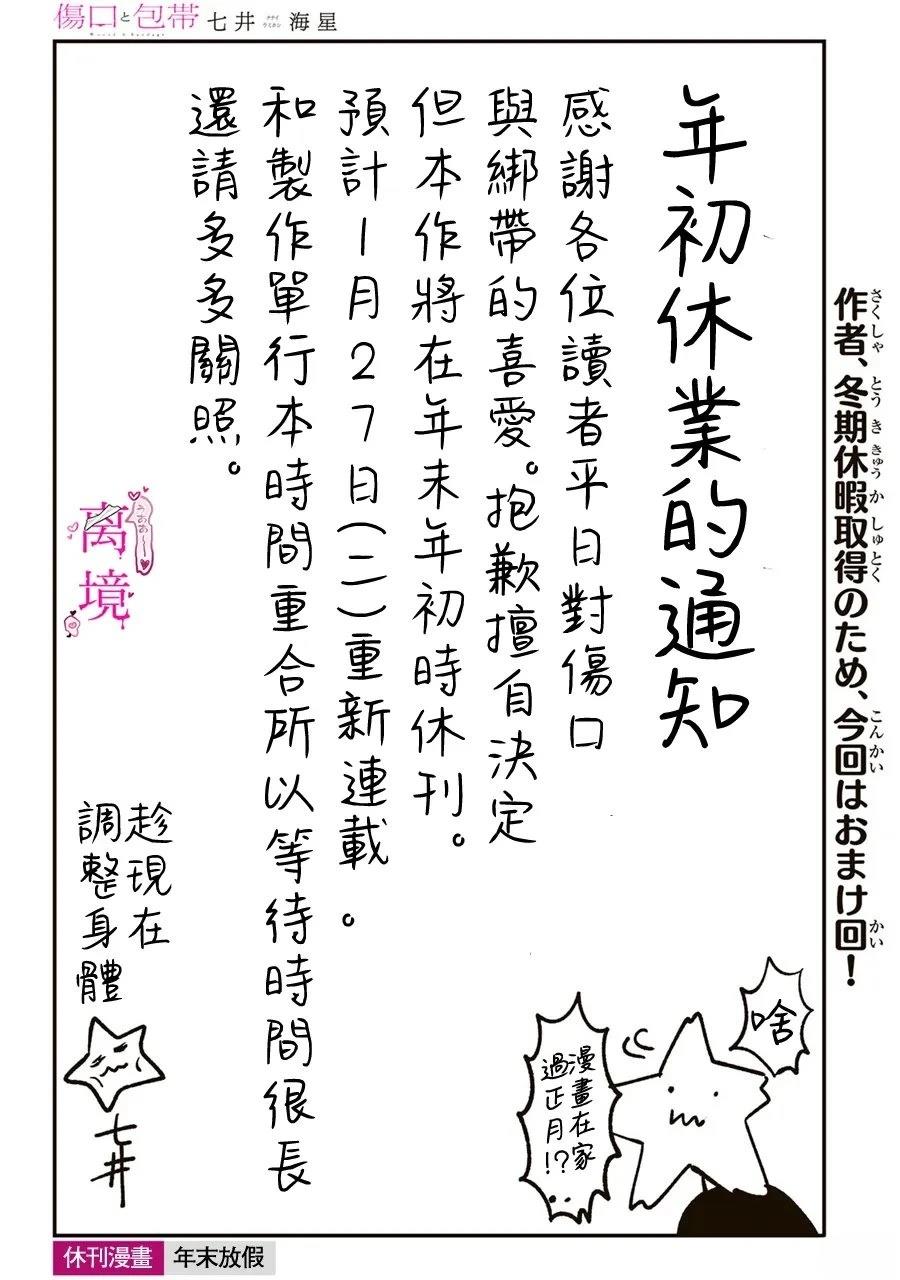 傷口と包帯
七井海星
ナナイ ウミホシ
作者、冬期休暇取得のため、今回はおまけ回！
さくしゃ とうききゅうかしゅとく こんかい かい
年初休業的通知
感謝各位讀者平日對傷口
與綁帶的喜愛。抱歉擅自決定
但本作將在年末年初時休刊。
預計1月27日(二)重新連載。
和製作單行本時間重合所以等待時間很長
還請多多關照。
离境
うああ〜
趁現在
調整身體
七井
啥
漫畫在家
過正月!?
休刊漫畫
年末放假